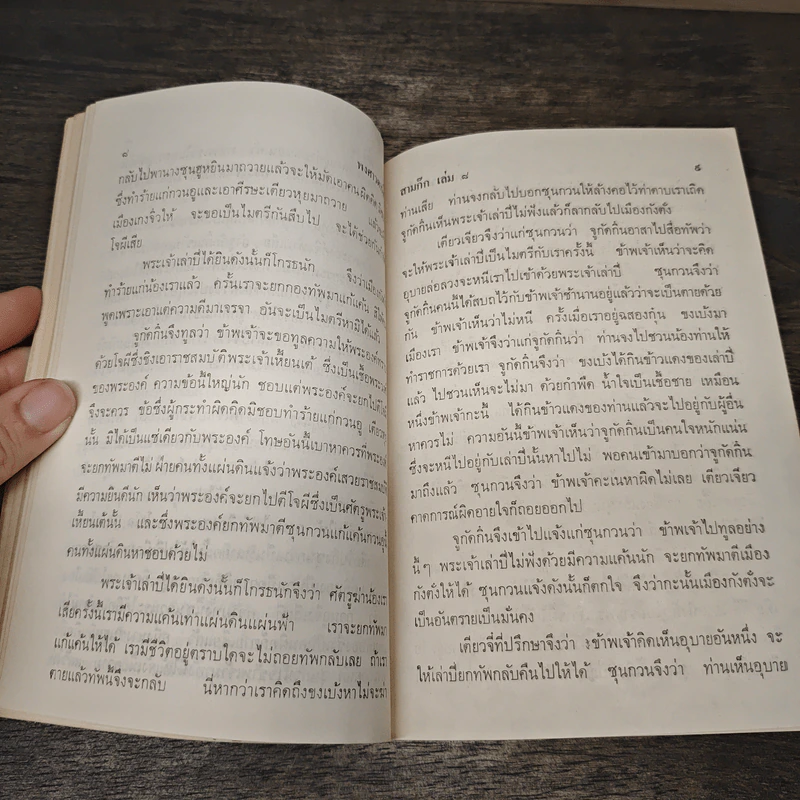 ๘
พงศาว
กลับไปพานางซุนฮูหยินมาถวายแล้วจะให้มัดเอาคนผิดคิด
ซึ่งทำร้ายแก่กวนอูและเอาศีรษะเตียวหุยมาถวาย แล้ว
เมืองเกงจิ๋วให้ จะขอเป็นไมตรีกันสืบไป จะได้ช่วยกัน
โจผีเสีย
พระเจ้าเล่าปี่ได้ยินดังนั้นก็โกรธนัก จึงว่าเมือง
ทำร้ายแก่น้องเราแล้ว ครั้นเราจะยกกองทัพมาแก้แค้น
พูดเพราะเอาแต่ความดีมาเจรจา อันจะเป็นไมตรีหามิได้แล้ว
จูกัดกิ๋นจึงทูลว่า ข้าพเจ้าจะขอทูลความให้พระองค์ทรา
ด้วยโจผีซึ่งชิงเอาราชสมบัติพระเจ้าเหี้ยนเต้ ซึ่งเป็นเชื้อพระ
ของพระองค์ ความข้อนี้ใหญ่นัก ชอบแต่พระองค์จะยกไปตีโจ
จึงจะควร ข้อซึ่งผู้กระทำผิดคิดมิชอบทำร้ายแก่กวนอู เตียว
นั้น มิได้เป็นแซ่เดียวกับพระองค์ โทษอันนี้เบาหาควรที่พระองค์
จะยกทัพมาตีไม่ ฝ่ายคนทั้งแผ่นดินแจ้งว่าพระองค์เสวยราชสมบัติ
มีความยินดีนัก เห็นว่าพระองค์จะยกไปตีโจผีซึ่งเป็นศัตรูพระเจ้า
เหี้ยนเต้นั้น และซึ่งพระองค์ยกทัพมาตีซุนกวนแก้แค้นกวนอูนี้
คนทั้งแผ่นดินหาชอบด้วยไม่
พระเจ้าเล่าปี่ได้ยินดังนั้นก็โกรธนักจึงว่า ศัตรูฆ่าน้องเรา
เสียครั้งนี้เรามีความแค้นเท่าแผ่นดินแผ่นฟ้า เราจะยกทัพมา
แก้แค้นให้ได้ เรามีชีวิตอยู่ตราบใดจะไม่ถอยทัพกลับเลย ถ้าเรา
ตายแล้วทัพนี้จึงจะกลับ นี่หากว่าเราคิดถึงขงเบ้งหาไม่จะฆ่า
สามก๊ก เล่ม ๘
๙
ท่านเสีย ท่านจงกลับไปบอกซุนกวนให้ล้างคอไว้ท่าดาบเราเถิด
จูกัดกิ๋นเห็นพระเจ้าเล่าปี่ไม่ฟังแล้วก็ลากลับไปเมืองกังตั๋ง
เตียวเจียวจึงว่าแก่ซุนกวนว่า จูกัดกิ๋นอาสาไปสื่อทัพว่า
จะให้พระเจ้าเล่าปี่เป็นไมตรีกับเราครั้งนี้ ข้าพเจ้าเห็นว่าจะคิด
อุบายล่อลวงจะหนีเราไปเข้าด้วยพระเจ้าเล่าปี่ ซุนกวนจึงว่า
จูกัดกิ๋นคนนี้ได้สบถไว้กับข้าพเจ้าช้านานอยู่แล้วว่าจะเป็นตายด้วย
กัน ข้าพเจ้าเห็นว่าไม่หนี ครั้งเมื่อเราอยู่ฉสองกุ๋น ขงเบ้งมา
เมืองเรา ข้าพเจ้าจึงว่าแก่จูกัดกิ๋นว่า ท่านจงไปชวนน้องท่านให้
ทำราชการด้วยเรา จูกัดกิ๋นจึงว่า ขงเบ้งได้กินข้าวแดงของเล่าปี่
แล้ว ไปชวนเห็นจะไม่มา ด้วยกำพืด น้ำใจเป็นเชื้อชาย เหมือน
หนึ่งข้าพเจ้ากะนี้ ได้กินข้าวแดงของท่านแล้วจะไปอยู่กับผู้อื่น
หาควรไม่ ความอันนี้ข้าพเจ้าเห็นว่าจูกัดกิ๋นเป็นคนใจหนักแน่น
ซึ่งจะหนีไปอยู่กับเล่าปี่นั้นหาไปไม่ พอคนเข้ามาบอกว่าจูกัดกิ๋น
มาถึงแล้ว ซุนกวนจึงว่า ข้าพเจ้าคะเนหาผิดไม่เลย เตียวเจียว
คาดการณ์ผิดอายใจก็ถอยออกไป
จูกัดกิ๋นจึงเข้าไปแจ้งแก่ซุนกวนว่า ข้าพเจ้าไปทูลอย่าง
นี้ๆ พระเจ้าเล่าปี่ไม่ฟังด้วยมีความแค้นนัก จะยกทัพมาตีเมือง
กังตั๋งให้ได้ ซุนกวนแจ้งดังนั้นก็ตกใจ จึงว่ากะนั้นเมืองกังตั๋งจะ
เป็นอันตรายเป็นมั่นคง
เตียวจี๋ที่ปรึกษาจึงว่า ข้าพเจ้าคิดเห็นอุบายอันหนึ่ง จะ
ให้เล่าปี่ยกทัพกลับคืนไปให้ได้ ซุนกวนจึงว่า ท่านเห็นอุบาย